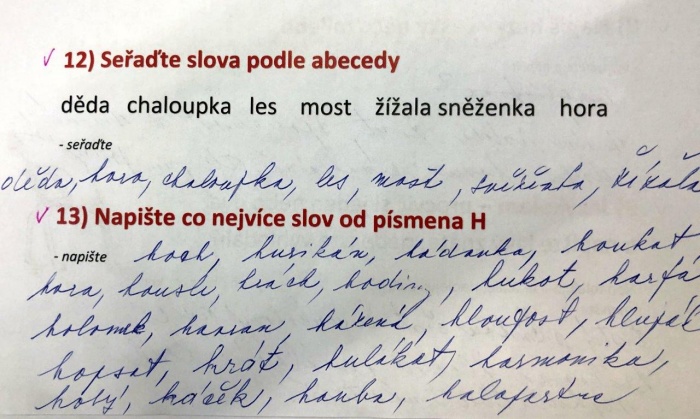 ✓ 12) Seřaďte slova podle abecedy
děda chaloupka les most žížala sněženka hora
- seřaďte
děda, hora, chaloupka, les, most, sněženka, žížala
✓ 13) Napište co nejvíce slov od písmena H
- napište hoch, hurikán, hádanka, houkat
hora, housle, hrách, hodiny, hukot, harfa
holomek, havran, házená, hloupost, hlupák
hopsat, hrát, hulákat, harmonika,
holý, háček, houba, halapartna